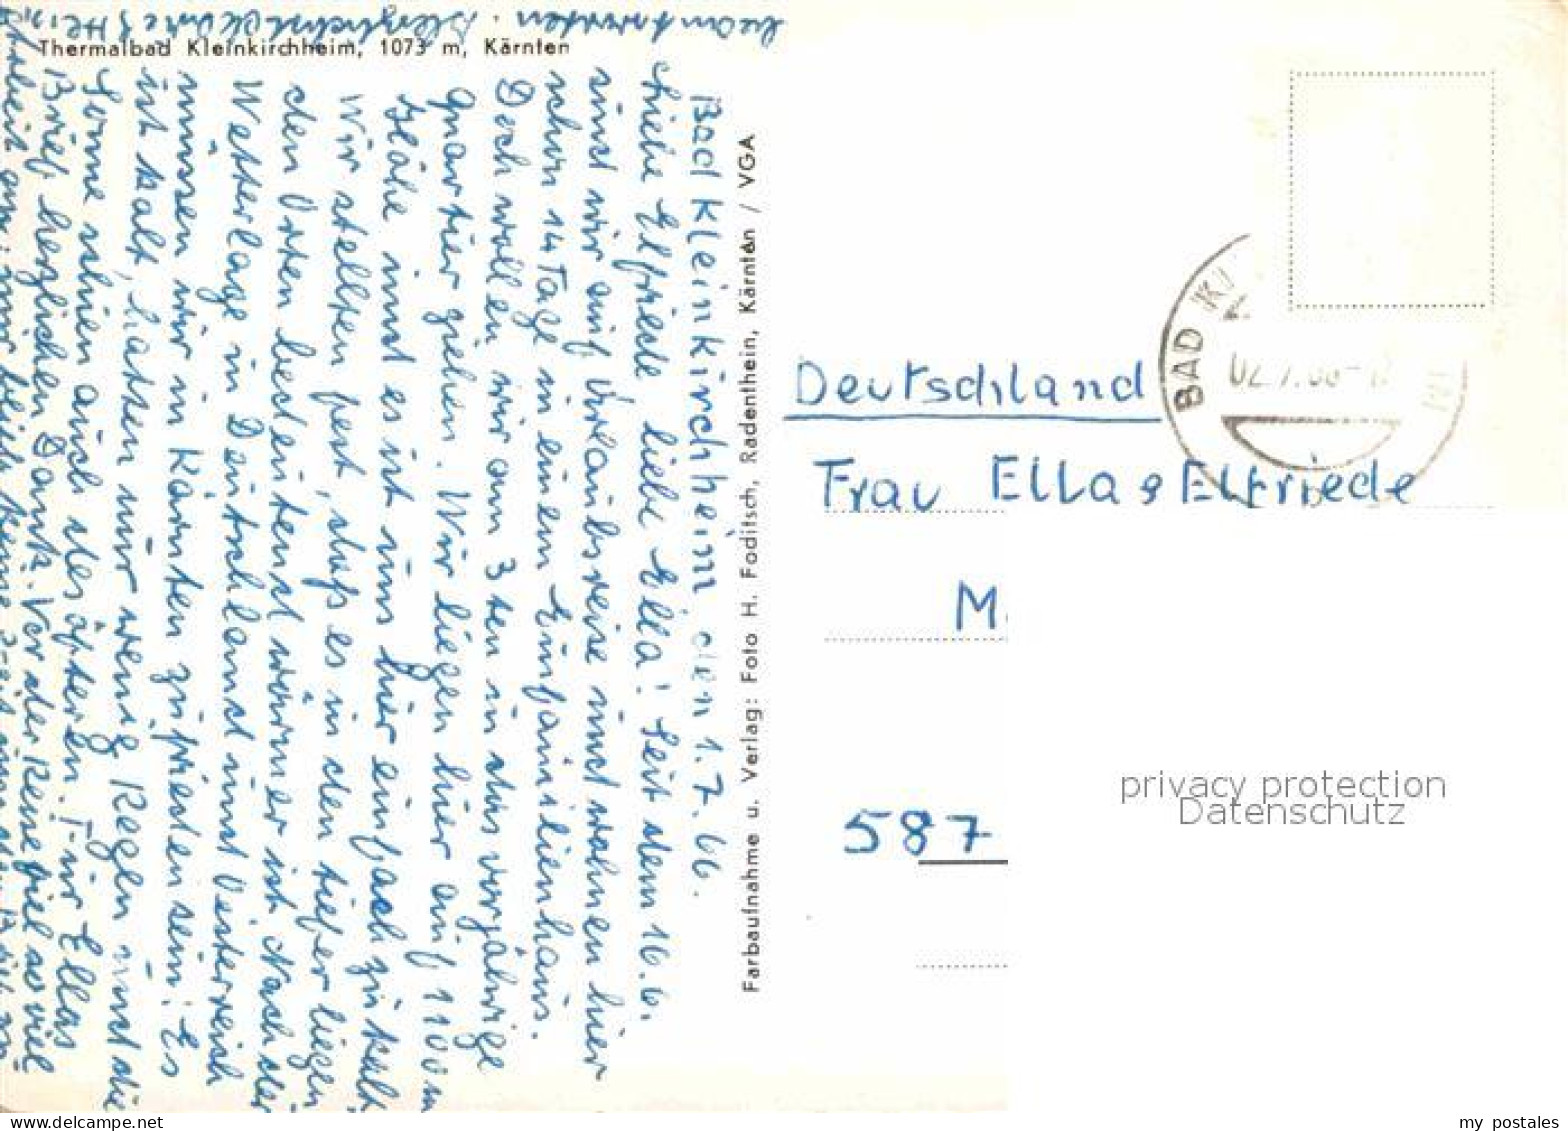 Thermalbad Kleinkirchheim, 1073 m, Kärnten
Bad Kleinkirchheim, den 1.7.66.
Liebe Elfriede liebe Ella! Seit dem 16.6.
sind wir auf Urlaubsreise und wohnen hier
schon 14 Tage in einem Einfamilienhaus.
Doch wollen wir am 3ten in das vorjährige
Quartier ziehen. Wir liegen hier auf 1100 m
Höhe und es ist uns hier einfach zu kalt.
Wir stellten fest, daß es in den tiefer liegen
den Orten bedeutend wärmer ist. Nach der
Wetterlage in Deutschland und Oesterreich
müssen wir in Kärnten zufrieden sein! Es
ist kalt, hatten nur wenig Regen und die
Sonne schien auch des öfteren. Für Ellas
Brief herzlichen Dank. Vor der Reise fiel so viel
Arbeit an, mir blieb keine Zeit mehr den Brief zu
beantworten. Herzlichst
Farbaufnahme u. Verlag: Foto H. Foditsch, Radenthein, Kärnten / VGA
BAD KL
Deutschland
Frau Ella & Elfriede
M
587
privacy protection
Datenschutz
my postales